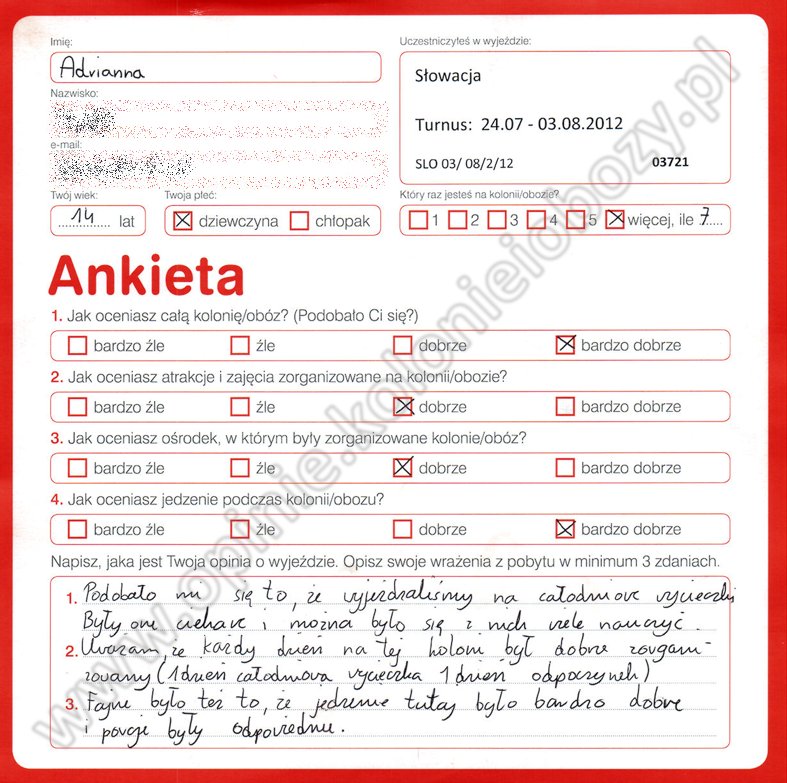 Imię:
Adrianna
Nazwisko:
e-mail:
Twój wiek:
14 lat
Twoja płeć:
dziewczyna chłopak
Uczestniczyłeś w wyjeździe:
Słowacja
Turnus: 24.07 - 03.08.2012
SLO 03/ 08/2/12 03721
Który raz jesteś na kolonii/obozie?
1 2 3 4 5 więcej, ile 7
Ankieta
1. Jak oceniasz całą kolonię/obóz? (Podobało Ci się?)
bardzo źle źle dobrze bardzo dobrze
2. Jak oceniasz atrakcje i zajęcia zorganizowane na kolonii/obozie?
bardzo źle źle dobrze bardzo dobrze
3. Jak oceniasz ośrodek, w którym były zorganizowane kolonie/obóz?
bardzo źle źle dobrze bardzo dobrze
4. Jak oceniasz jedzenie podczas kolonii/obozu?
bardzo źle źle dobrze bardzo dobrze
Napisz, jaka jest Twoja opinia o wyjeździe. Opisz swoje wrażenia z pobytu w minimum 3 zdaniach.
1. Podobało mi się to, że wyjeżdżaliśmy na całodniowe wycieczki
Były one ciekawe i można było się z nich wiele nauczyć.
2. Uważam, że każdy dzień na tej koloni był dobrze zorgani-
zowany (1 dzień całodniowa wycieczka 1 dzień odpoczynek)
3. Fajne było też to, że jedzenie tutaj było bardzo dobre
i porcje były odpowiednie.
www.opinie.kolonieiobozy.pl